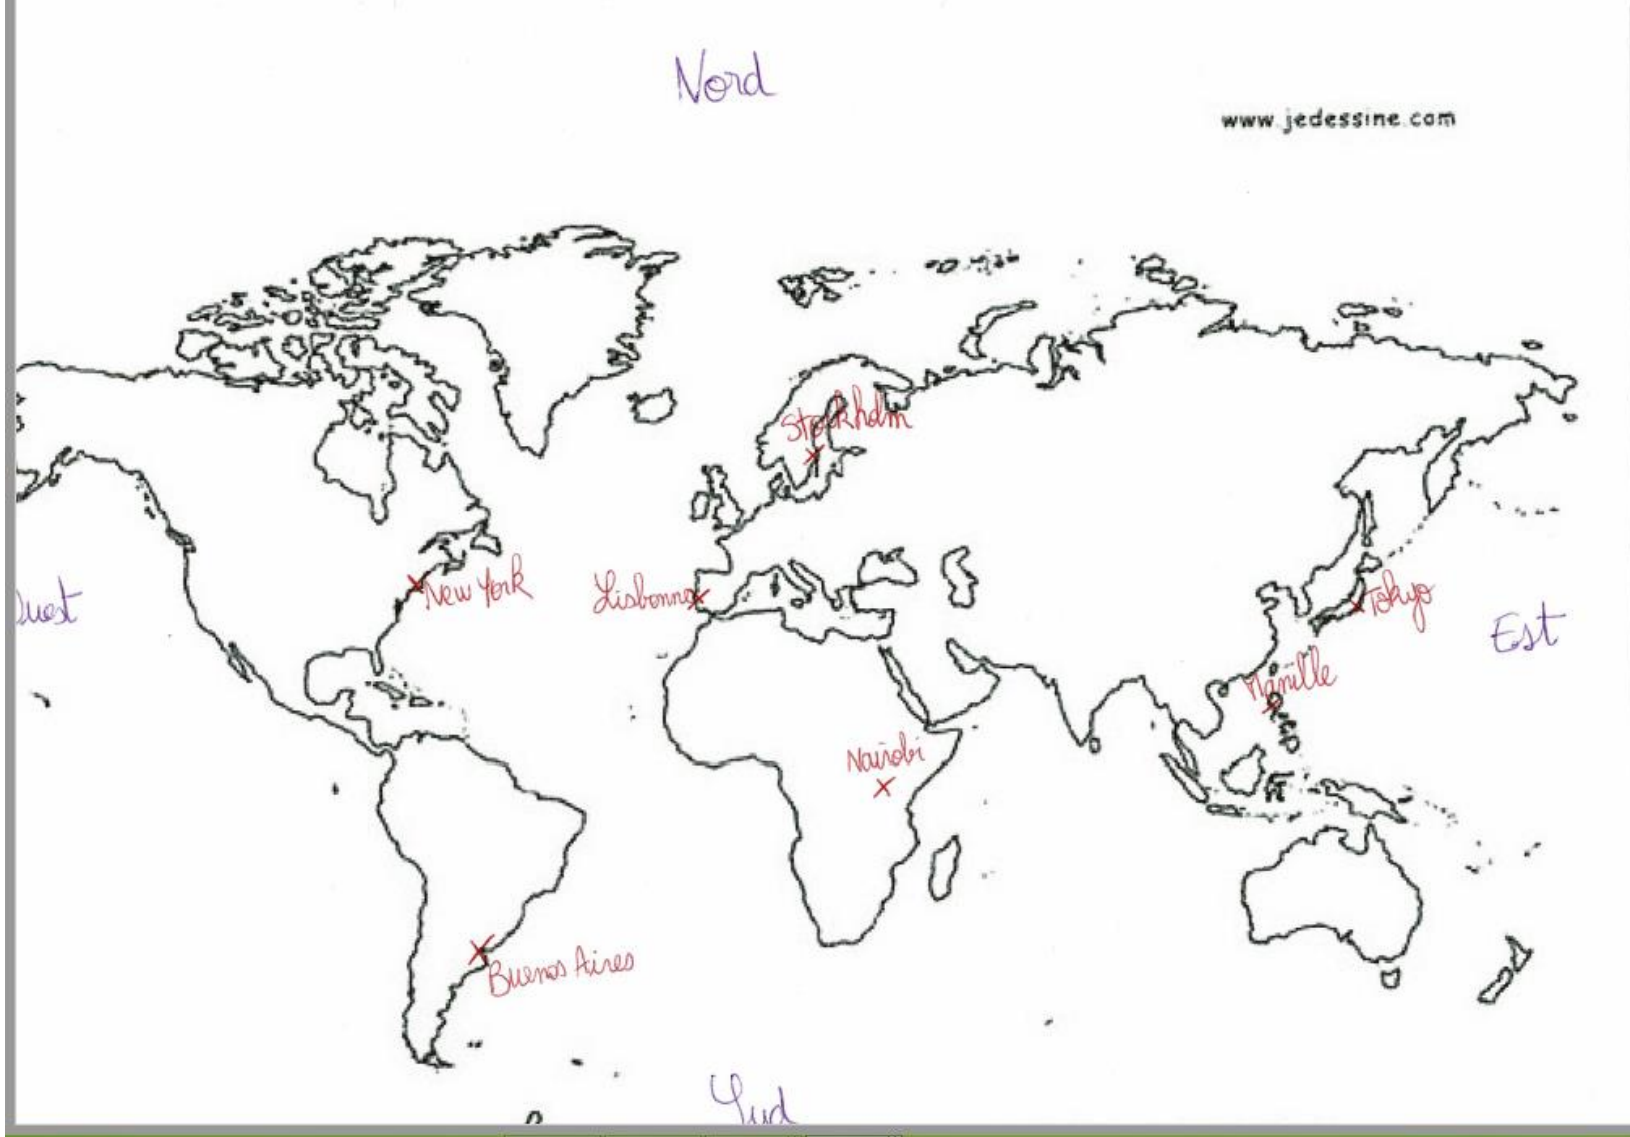 Nord
www.jedessine.com
Stockholm
New York
Lisbonne
Tokyo
Ouest
Est
Manille
Nairobi
Buenos Aires
Sud